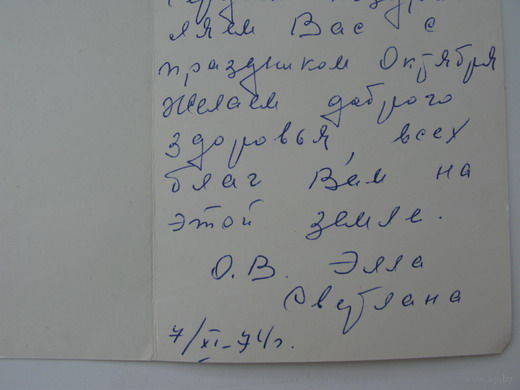 ляем Вас с
праздником Октября
Желаем доброго
здоровья, всех
благ Вам на
этой земле.
О.В. Элла
Светлана
7/XI-74г.